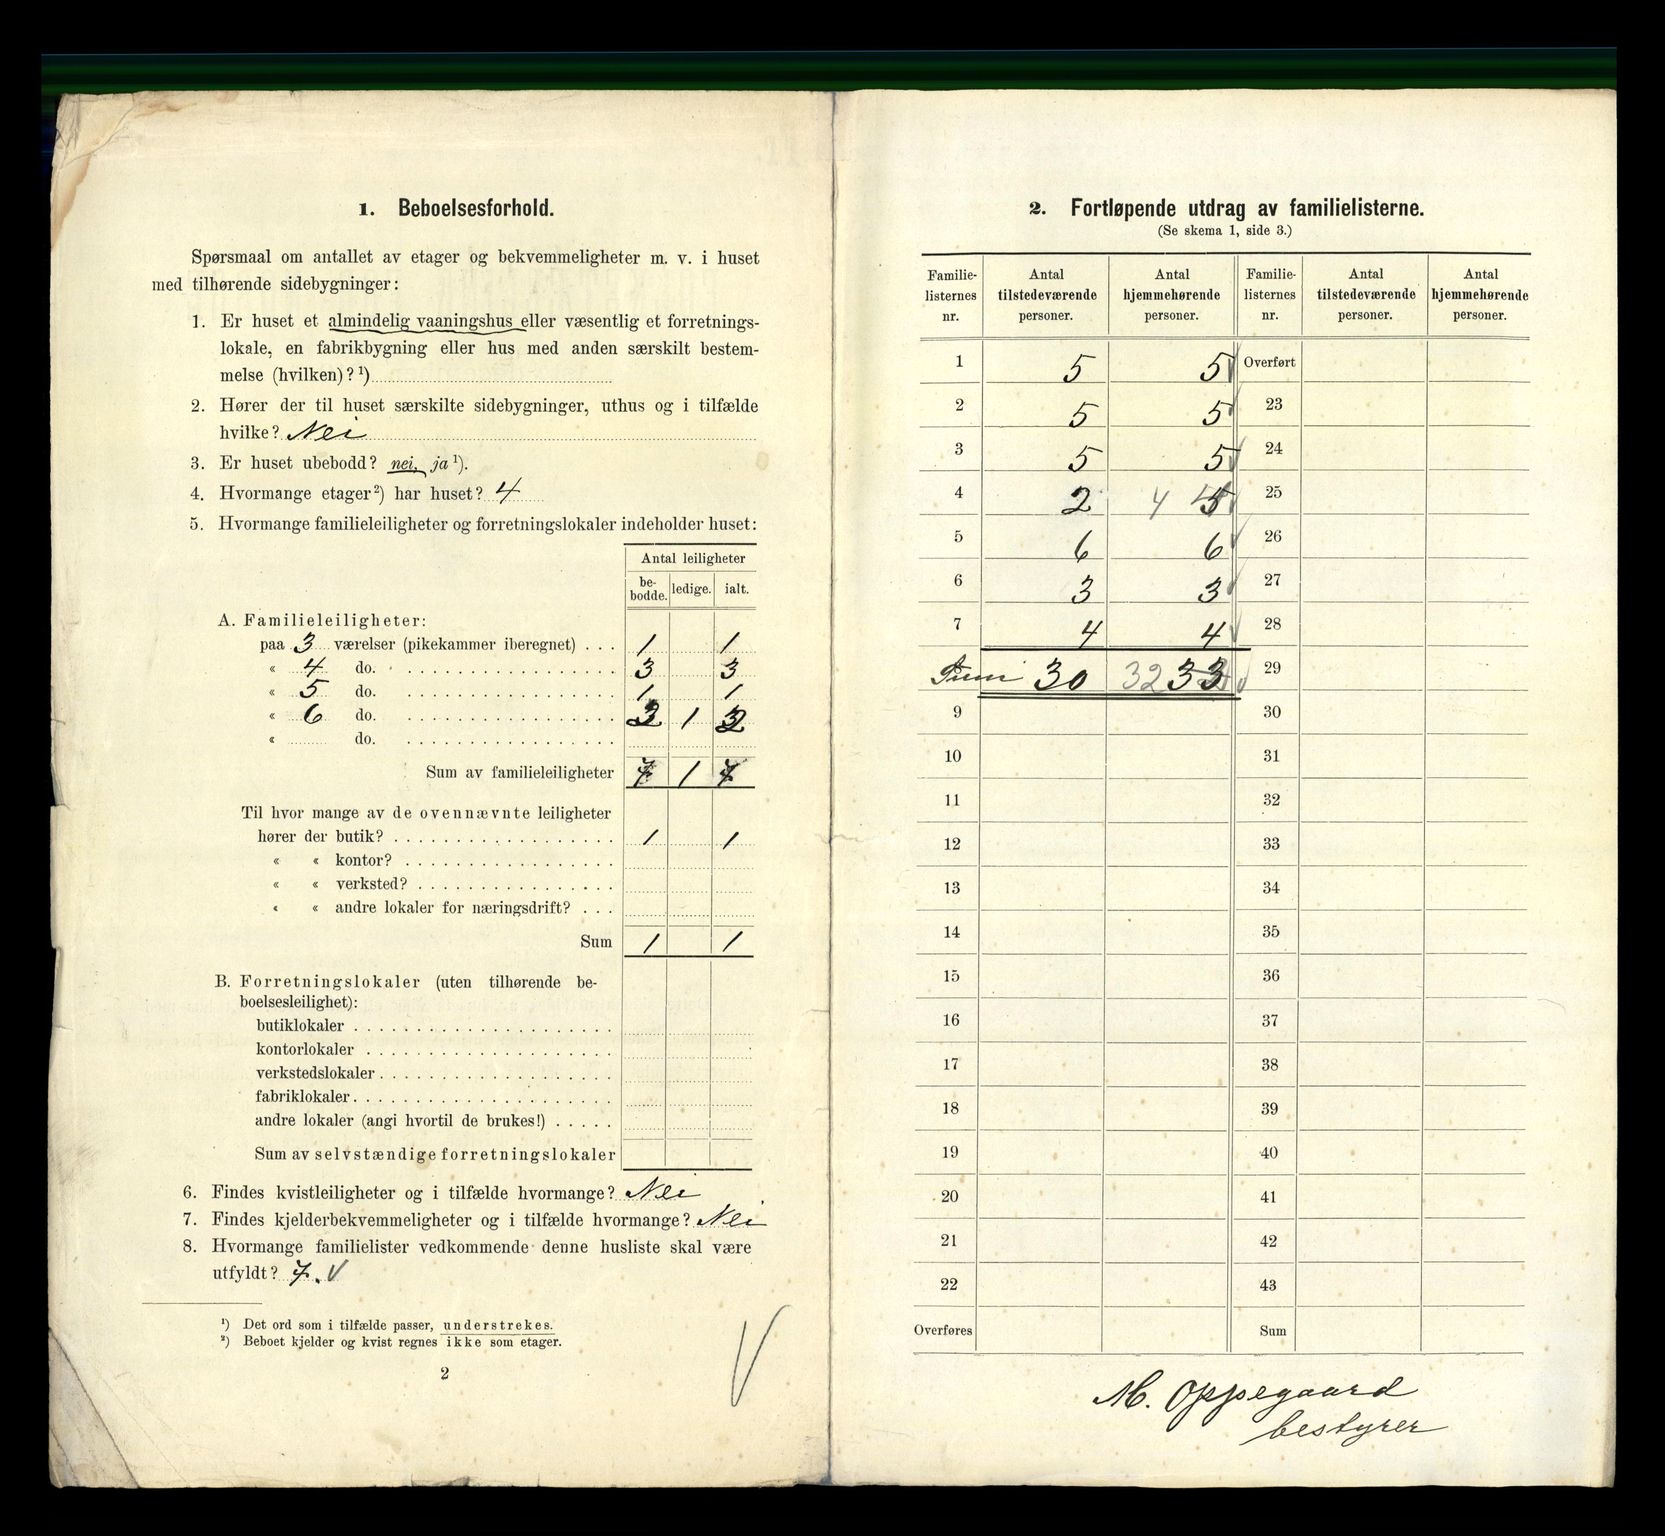 1. Beboelsesforhold.
Spørsmaal om antallet av etager og bekvemmeligheter m. v. i huset
med tilhørende sidebygninger:
1. Er huset et almindelig vaaningshus eller væsentlig et forretnings-
lokale, en fabrikbygning eller hus med anden særskilt bestem-
melse (hvilken)? ¹)
2. Hører der til huset særskilte sidebygninger, uthus og i tilfælde
hvilke? Nei
3. Er huset ubebodd? nei, ja ¹).
4. Hvormange etager ²) har huset? 4
5. Hvormange familieleiligheter og forretningslokaler indeholder huset:
Antal leiligheter
be-bodde. ledige. ialt.
A. Familieleiligheter:
paa 3 værelser (pikekammer iberegnet) . . . 1 1
« 4 do. 3 3
« 5 do. 1 1
« 6 do. 2 1
« do.
Sum av familieleiligheter 7 1 7
Til hvor mange av de ovennævnte leiligheter
hører der butik? 1 1
« « kontor?
« « verksted?
« « andre lokaler for næringsdrift? . . .
Sum 1 1
B. Forretningslokaler (uten tilhørende be-
boelsesleilighet):
butiklokaler
kontorlokaler
verkstedslokaler
fabriklokaler
andre lokaler (angi hvortil de brukes!)
Sum av selvstændige forretningslokaler
6. Findes kvistleiligheter og i tilfælde hvormange? Nei
7. Findes kjelderbekvemmeligheter og i tilfælde hvormange? Nei
8. Hvormange familielister vedkommende denne husliste skal være
utfyldt? 7. V
¹) Det ord som i tilfælde passer, understrekes.
²) Beboet kjelder og kvist regnes ikke som etager.
2
V
2. Fortløpende utdrag av familielisterne.
(Se skema 1, side 3.)
Familie-listernes nr. Antal tilstedeværende personer. Antal hjemmehørende personer. Familie-listernes nr. Antal tilstedeværende personer. Antal hjemmehørende personer.
1 5 5 Overført
2 5 5 23
3 5 5 24
4 2 4 5 25
5 6 6 26
6 3 3 27
7 4 4 28
Sum 30 32 33 29
9 30
10 31
11 32
12 33
13 34
14 35
15 36
16 37
17 38
18 39
19 40
20 41
21 42
22 43
Overføres Sum
M. Oppegaard
bestyrer